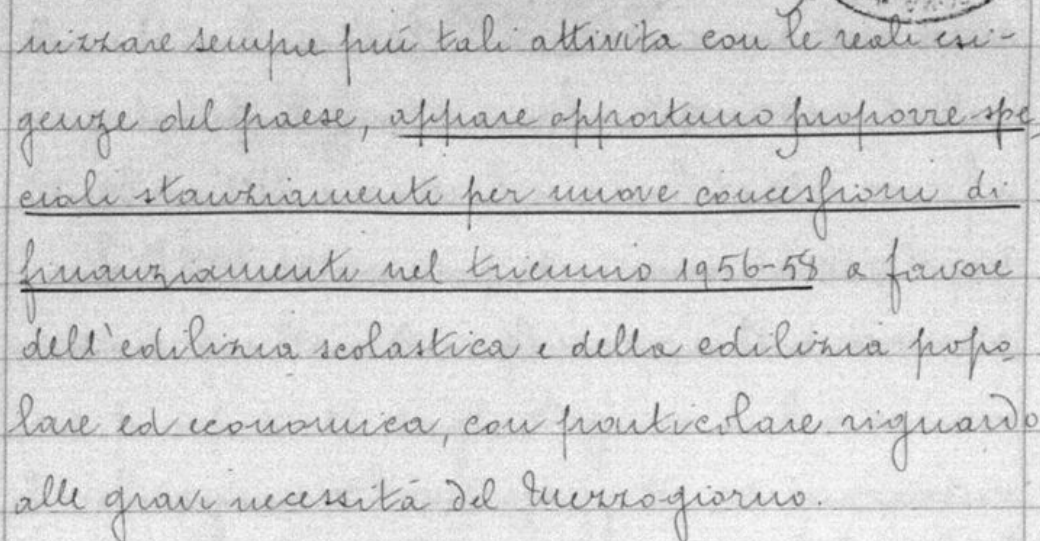 nizzare sempre più tali attività con le reali esi-
genze del paese, appare opportuno proporre spe
ciali stanziamenti per nuove concessioni di
finanziamenti nel triennio 1956-58 a favore
dell'edilizia scolastica e della edilizia popo
lare ed economica, con particolare riguardo
alle gravi necessità del Mezzogiorno.